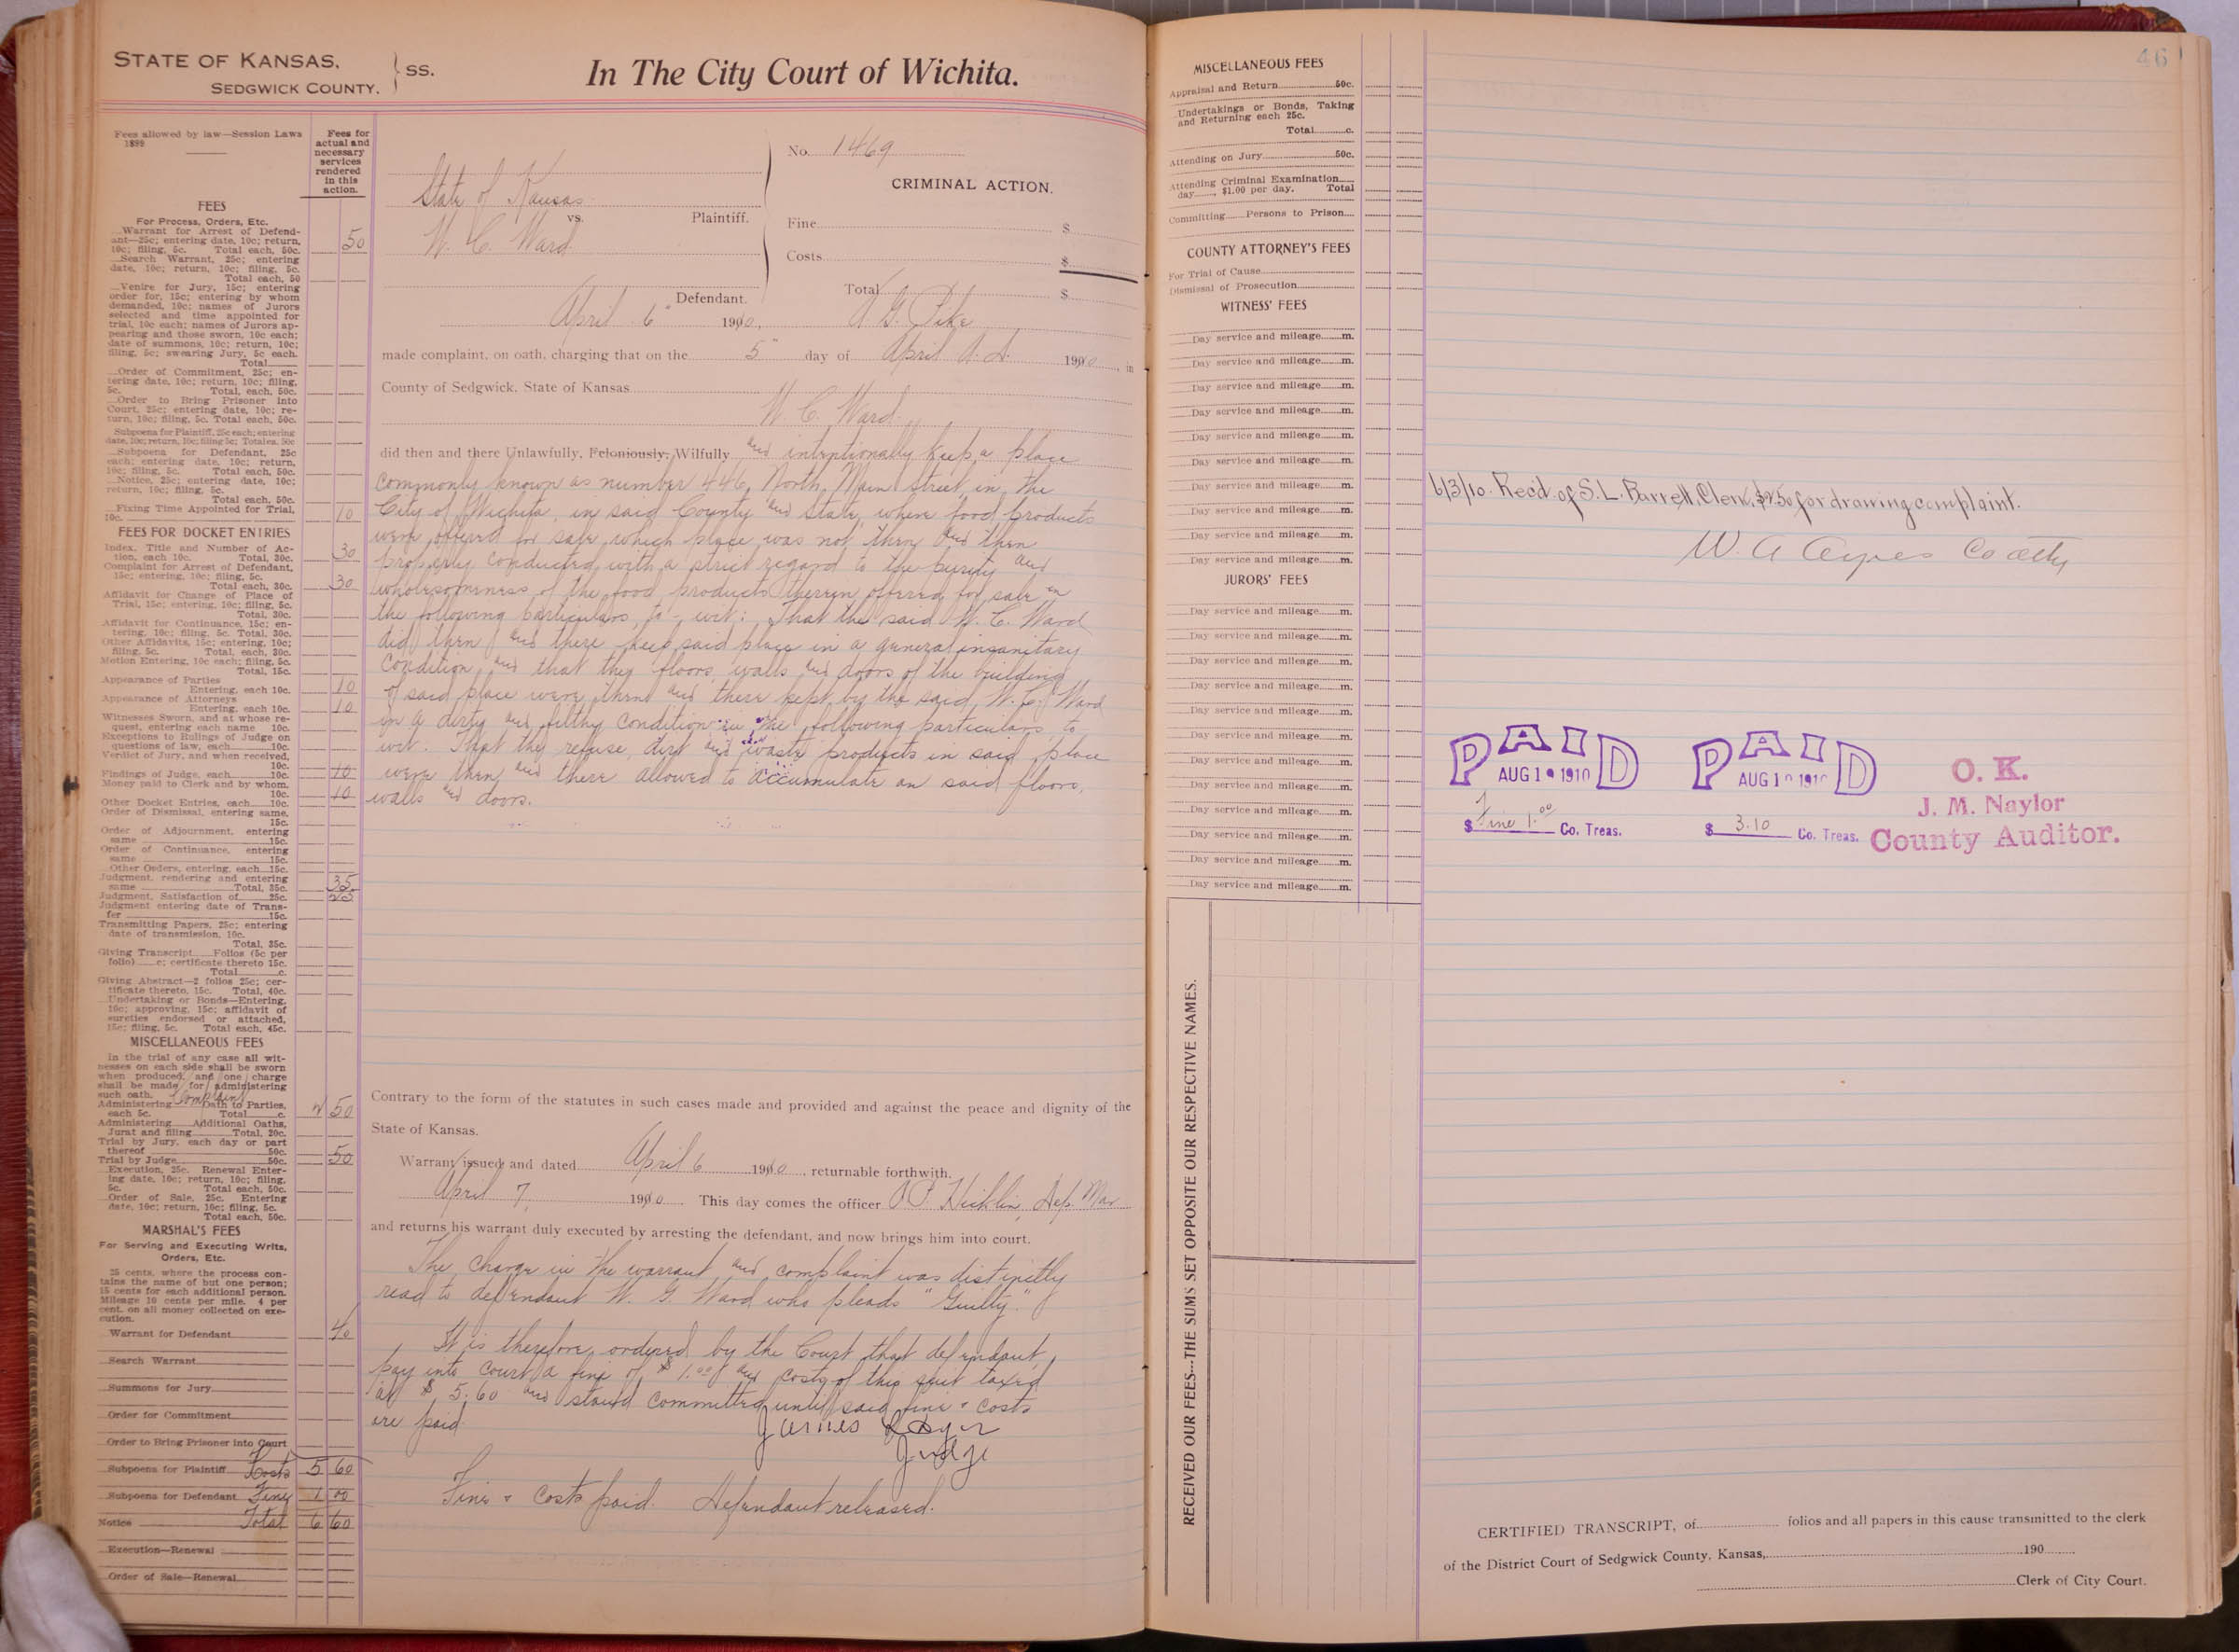 STATE OF KANSAS,
SEDGWICK COUNTY.
SS.
In The City Court of Wichita.
Fees allowed by law—Session Laws
1899
Fees for
actual and
necessary
services
rendered
in this
action.
FEES
For Process, Orders, Etc.
Warrant for Arrest of Defend-
ant—25c; entering date, 10c; return,
10c; filing, 5c. Total each, 50c. 50
Search Warrant, 25c; entering
date, 10c; return, 10c; filing, 5c.
Total each, 50
Venire for Jury, 15c; entering
order for, 15c; entering by whom
demanded, 10c; names of Jurors
selected and time appointed for
trial, 10c each; names of Jurors ap-
pearing and those sworn, 10c each;
date of summons, 10c; return, 10c;
filing, 5c; swearing Jury, 5c each.
Total
Order of Commitment, 25c; en-
tering date, 10c; return, 10c; filing,
5c. Total, each, 50c.
Order to Bring Prisoner into
Court, 25c; entering date, 10c; re-
turn, 10c; filing, 5c. Total each, 50c.
Subpoena for Plaintiff, 25c each; entering
date, 10c; return, 10c; filing 5c; Total ea. 50c
Subpoena for Defendant, 25c
each; entering date, 10c; return,
10c; filing, 5c. Total each, 50c.
Notice, 25c; entering date, 10c;
return, 10c; filing, 5c.
Total each, 50c.
Fixing Time Appointed for Trial,
10c. 10
FEES FOR DOCKET ENTRIES
Index, Title and Number of Ac-
tion, each 10c. Total, 30c. 30
Complaint for Arrest of Defendant,
15c; entering, 10c; filing, 5c.
Total each, 30c. 30
Affidavit for Change of Place of
Trial, 15c; entering, 10c; filing, 5c.
Total, 30c.
Affidavit for Continuance, 15c; en-
tering, 10c; filing, 5c. Total, 30c.
Other Affidavits, 15c; entering, 10c;
filing, 5c. Total, each, 30c.
Motion Entering, 10c each; filing, 5c.
Total, 15c.
Appearance of Parties
Entering, each 10c. 10
Appearance of Attorneys
Entering, each 10c. 10
Witnesses Sworn, and at whose re-
quest, entering each name 10c.
Exceptions to Rulings of Judge on
questions of law, each 10c.
Verdict of Jury, and when received,
10c.
Findings of Judge, each 10c. 10
Money paid to Clerk and by whom,
10c. 10
Other Docket Entries, each 10c.
Order of Dismissal, entering same,
15c.
Order of Adjournment, entering
same 15c.
Order of Continuance, entering
same 15c.
Other Orders, entering, each 15c.
Judgment, rendering and entering
same Total, 35c. 35
Judgment, Satisfaction of 25c. 25
Judgment entering date of Trans-
fer 15c.
Transmitting Papers, 25c; entering
date of transmission, 10c.
Total, 35c.
Giving Transcript Folios (5c per
folio) c; certificate thereto 15c.
Total c.
Giving Abstract—2 folios 25c; cer-
tificate thereto, 15c. Total, 40c.
Undertaking or Bonds—Entering,
10c; approving, 15c; affidavit of
sureties endorsed or attached,
15c; filing, 5c. Total each, 45c.
MISCELLANEOUS FEES
In the trial of any case all wit-
nesses on each side shall be sworn
when produced, and one charge
shall be made for administering
such oath. Complaint
Administering Oath to Parties,
each 5c. Total c. 2 50
Administering Additional Oaths,
Jurat and filing Total, 20c.
Trial by Jury, each day or part
thereof 50c.
Trial by Judge 50c. 50
Execution, 25c. Renewal Enter-
ing date, 10c; return, 10c; filing,
5c. Total each, 50c.
Order of Sale, 25c. Entering
date, 10c; return, 10c; filing, 5c.
Total each, 50c.
MARSHAL'S FEES
For Serving and Executing Writs,
Orders, Etc.
25 cents, where the process con-
tains the name of but one person;
15 cents for each additional person.
Mileage 10 cents per mile. 4 per
cent. on all money collected on exe-
cution.
Warrant for Defendant 40
Search Warrant
Summons for Jury
Order for Commitment
Order to Bring Prisoner into Court
Subpoena for Plaintiff Costs 5 60
Subpoena for Defendant Fine 1 00
Notice Total 6 60
Execution—Renewal
Order of Sale—Renewal
State of Kansas
vs. Plaintiff.
W. C. Ward
Defendant.
No. 1469
CRIMINAL ACTION.
Fine $
Costs $
Total $
April 6" 1910, A. G. Pike
made complaint, on oath, charging that on the 5" day of April A.D. 1910, in
County of Sedgwick, State of Kansas
W. C. Ward
did then and there Unlawfully, Feloniously, Wilfully and intentionally keep a place
commonly known as number 446 North Main Street in the
City of Wichita, in said County and State, where food products
were offered for sale, which place was not then and then
properly conducted with a strict regard to the purity and
wholesomeness of the food products therein offered for sale in
the following particulars, to wit: That the said W. C. Ward
did then and there keep said place in a general insanitary
condition, and that the floors, walls and doors of the building
of said place were then and there kept by the said W. C. Ward
in a dirty and filthy condition in the following particulars, to
wit: That the refuse, dirt and waste products in said place
were then and there allowed to accumulate on said floors,
walls and doors.
Contrary to the form of the statutes in such cases made and provided and against the peace and dignity of the
State of Kansas.
Warrant issued and dated April 6 1910, returnable forthwith.
April 7, 1910 This day comes the officer O P Hicklin, Dep. Mar
and returns his warrant duly executed by arresting the defendant, and now brings him into court.
The charge in the warrant and complaint was distinctly
read to defendant W. G. Ward who pleads "Guilty."
It is therefore ordered by the Court that defendant
pay into court a fine of $1.00 and costs of this suit taxed
at $5.60 and stand committed until said fine & costs
are paid.
James
Judge
Fine & costs paid. Defendant released.
MISCELLANEOUS FEES
Appraisal and Return 50c.
Undertakings or Bonds, Taking
and Returning each 25c.
Total c.
Attending on Jury 50c.
Attending Criminal Examination
day, $1.00 per day. Total
Committing Persons to Prison
COUNTY ATTORNEY'S FEES
For Trial of Cause
Dismissal of Prosecution
WITNESS' FEES
Day service and mileage m.
Day service and mileage m.
Day service and mileage m.
Day service and mileage m.
Day service and mileage m.
Day service and mileage m.
Day service and mileage m.
Day service and mileage m.
Day service and mileage m.
Day service and mileage m.
JURORS' FEES
Day service and mileage m.
Day service and mileage m.
Day service and mileage m.
Day service and mileage m.
Day service and mileage m.
Day service and mileage m.
Day service and mileage m.
Day service and mileage m.
Day service and mileage m.
Day service and mileage m.
Day service and mileage m.
Day service and mileage m.
RECEIVED OUR FEES---THE SUMS SET OPPOSITE OUR RESPECTIVE NAMES.
46
6/3/10. Rec'd of S. L. Barrett, Clerk, $2.50 for drawing complaint.
W. A Ayres Co atty
PAID
AUG 1 1910
$ Fine 1.00 Co. Treas.
PAID
AUG 1 1910
$ 3.10 Co. Treas.
O. K.
J. M. Naylor
County Auditor.
CERTIFIED TRANSCRIPT, of folios and all papers in this cause transmitted to the clerk
of the District Court of Sedgwick County, Kansas, 190
Clerk of City Court.